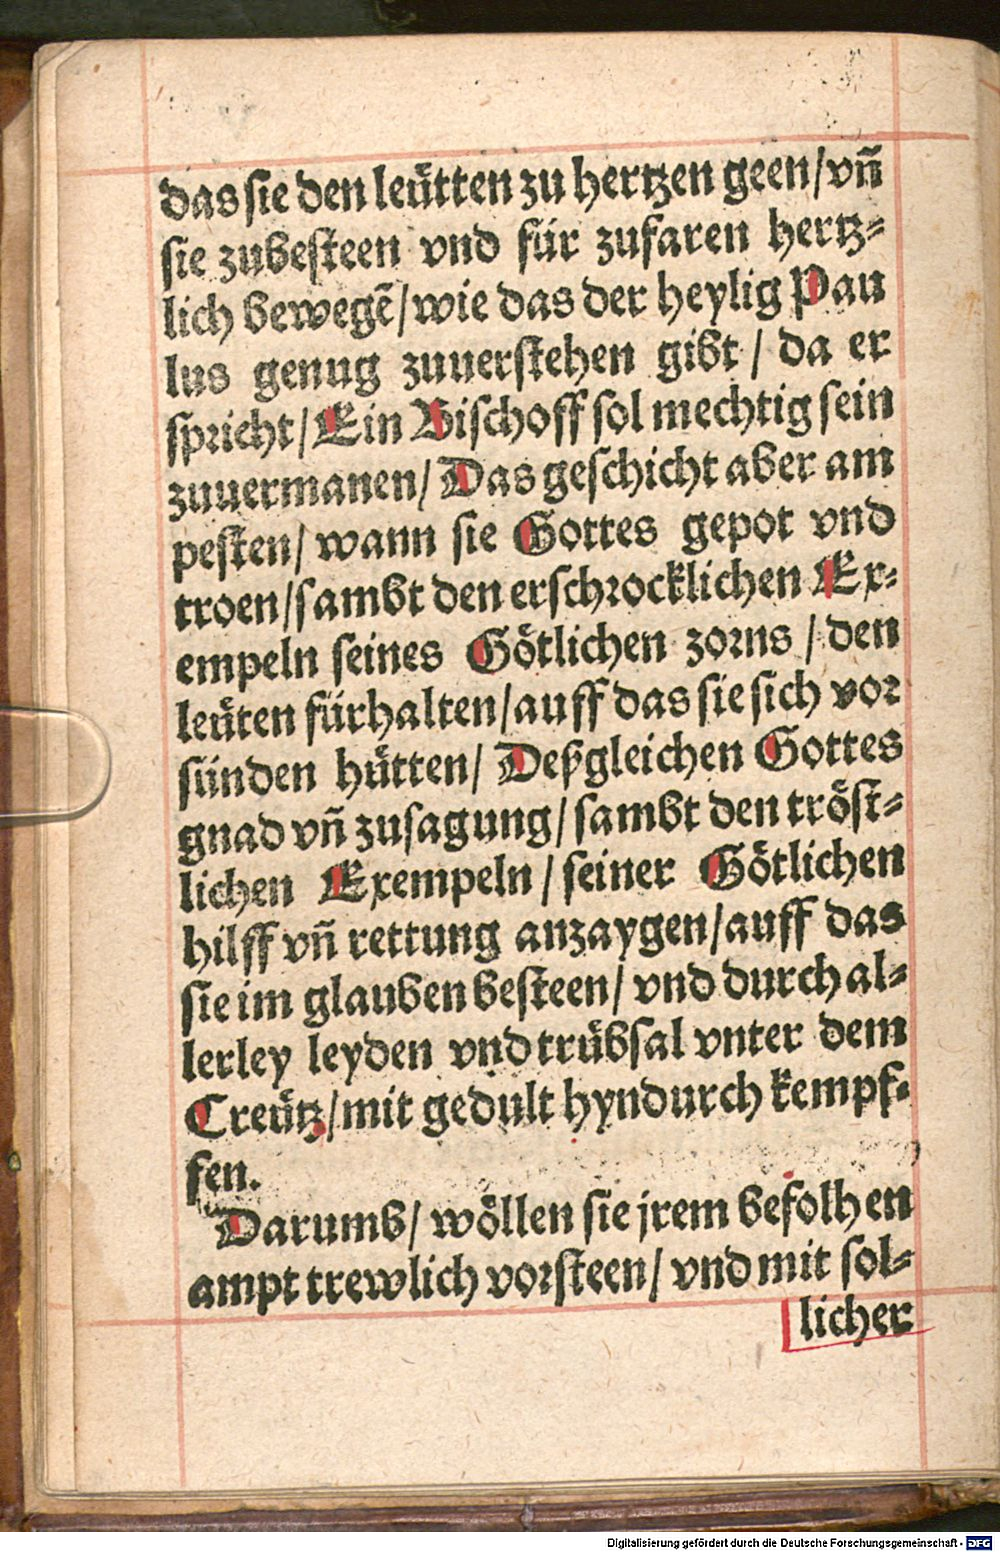 das sie den leütten zu hertzen geen/vñ
sie zubesteen vnd für zufaren hertz-
lich bewegẽ/wie das der heylig Pau
lus genug zuuerstehen gibt / da er
spricht/Ein Bischoff sol mechtig sein
zuuermanen/Das geschicht aber am
pesten/wann sie Gottes gepot vnd
troen/sambt den erschrocklichen Ex-
empeln seines Götlichen zorns / den
leüten fürhalten/auff das sie sich vor
sünden hütten/ Deßgleichen Gottes
gnad vñ zusagung/sambt den tröst-
lichen Exempeln / seiner Götlichen
hilff vñ rettung anzaygen/auff das
sie im glauben besteen/ vnd durch al-
lerley leyden vnd trübsal vnter dem
Creütz/mit gedult hyndurch kempf-
fen.
Darumb/ wöllen sie jrem befolhen
ampt trewlich vorsteen/ vnd mit sol-
licher
Digitalisierung gefördert durch die Deutsche Forschungsgemeinschaft - DFG